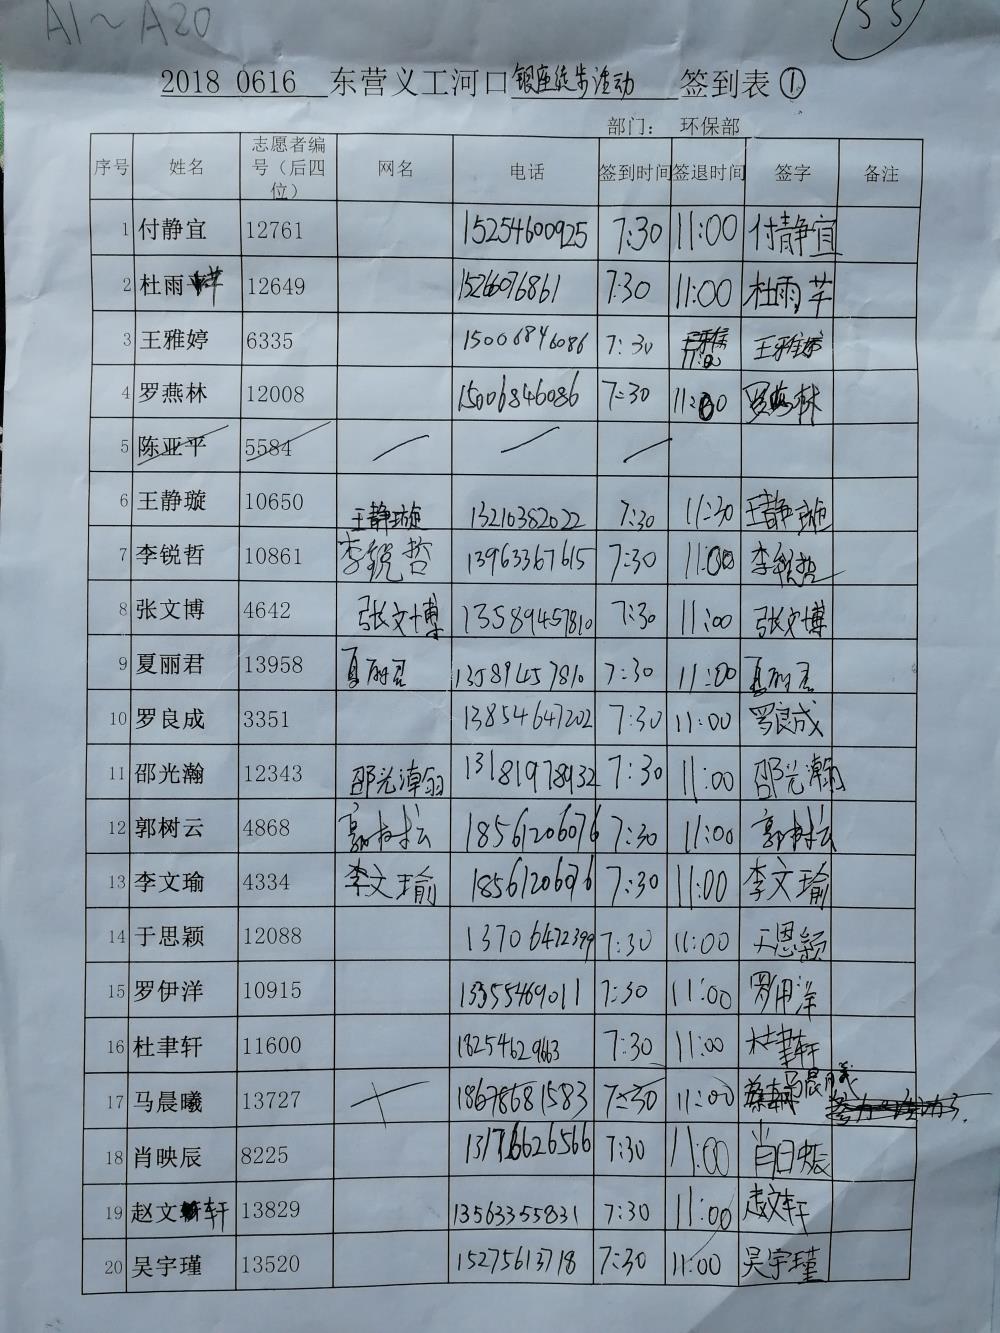 A1~A20
55
2018 0616 东营义工河口银座徒步活动 签到表①
部门： 环保部
序号 姓名 志愿者编号（后四位） 网名 电话 签到时间 签退时间 签字 备注
1 付静宜 12761 15254600925 7:30 11:00 付静宜
2 杜雨芊 12649 15266076861 7:30 11:00 杜雨芊
3 王雅婷 6335 15006846086 7:30 11:00 王雅婷
4 罗燕林 12008 15006846086 7:30 11:00 罗燕林
5 陈亚平 5584
6 王静璇 10650 王静璇 13210382022 7:30 11:30 王静璇
7 李锐哲 10861 李锐哲 13963367615 7:30 11:00 李锐哲
8 张文博 4642 张文博 13589457810 7:30 11:00 张文博
9 夏丽君 13958 夏丽君 13589457810 7:30 11:00 夏丽君
10 罗良成 3351 13854647202 7:30 11:00 罗良成
11 邵光瀚 12343 邵光瀚 13181978932 7:30 11:00 邵光瀚
12 郭树云 4868 郭树云 18561206076 7:30 11:00 郭树云
13 李文瑜 4334 李文瑜 18561206076 7:30 11:00 李文瑜
14 于思颖 12088 13706472399 7:30 11:00 于恩颖
15 罗伊洋 10915 13355469011 7:30 11:00 罗伊洋
16 杜聿轩 11600 18254629663 7:30 11:00 杜聿轩
17 马晨曦 13727 18678681583 7:30 11:00 马晨曦
18 肖映辰 8225 13176626566 7:30 11:00 肖映辰
19 赵文轩 13829 13563355831 7:30 11:00 赵文轩
20 吴宇瑾 13520 15275613718 7:30 11:00 吴宇瑾